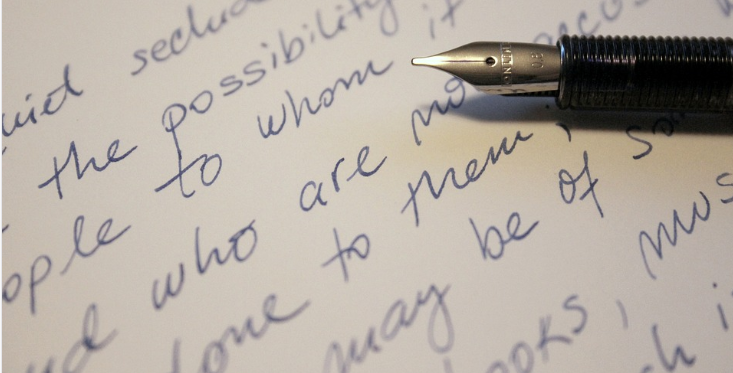 quiet seclu
the possibility
ople to whom it
nd who are no
done to them;
may be of so
ooks, mus
ch i